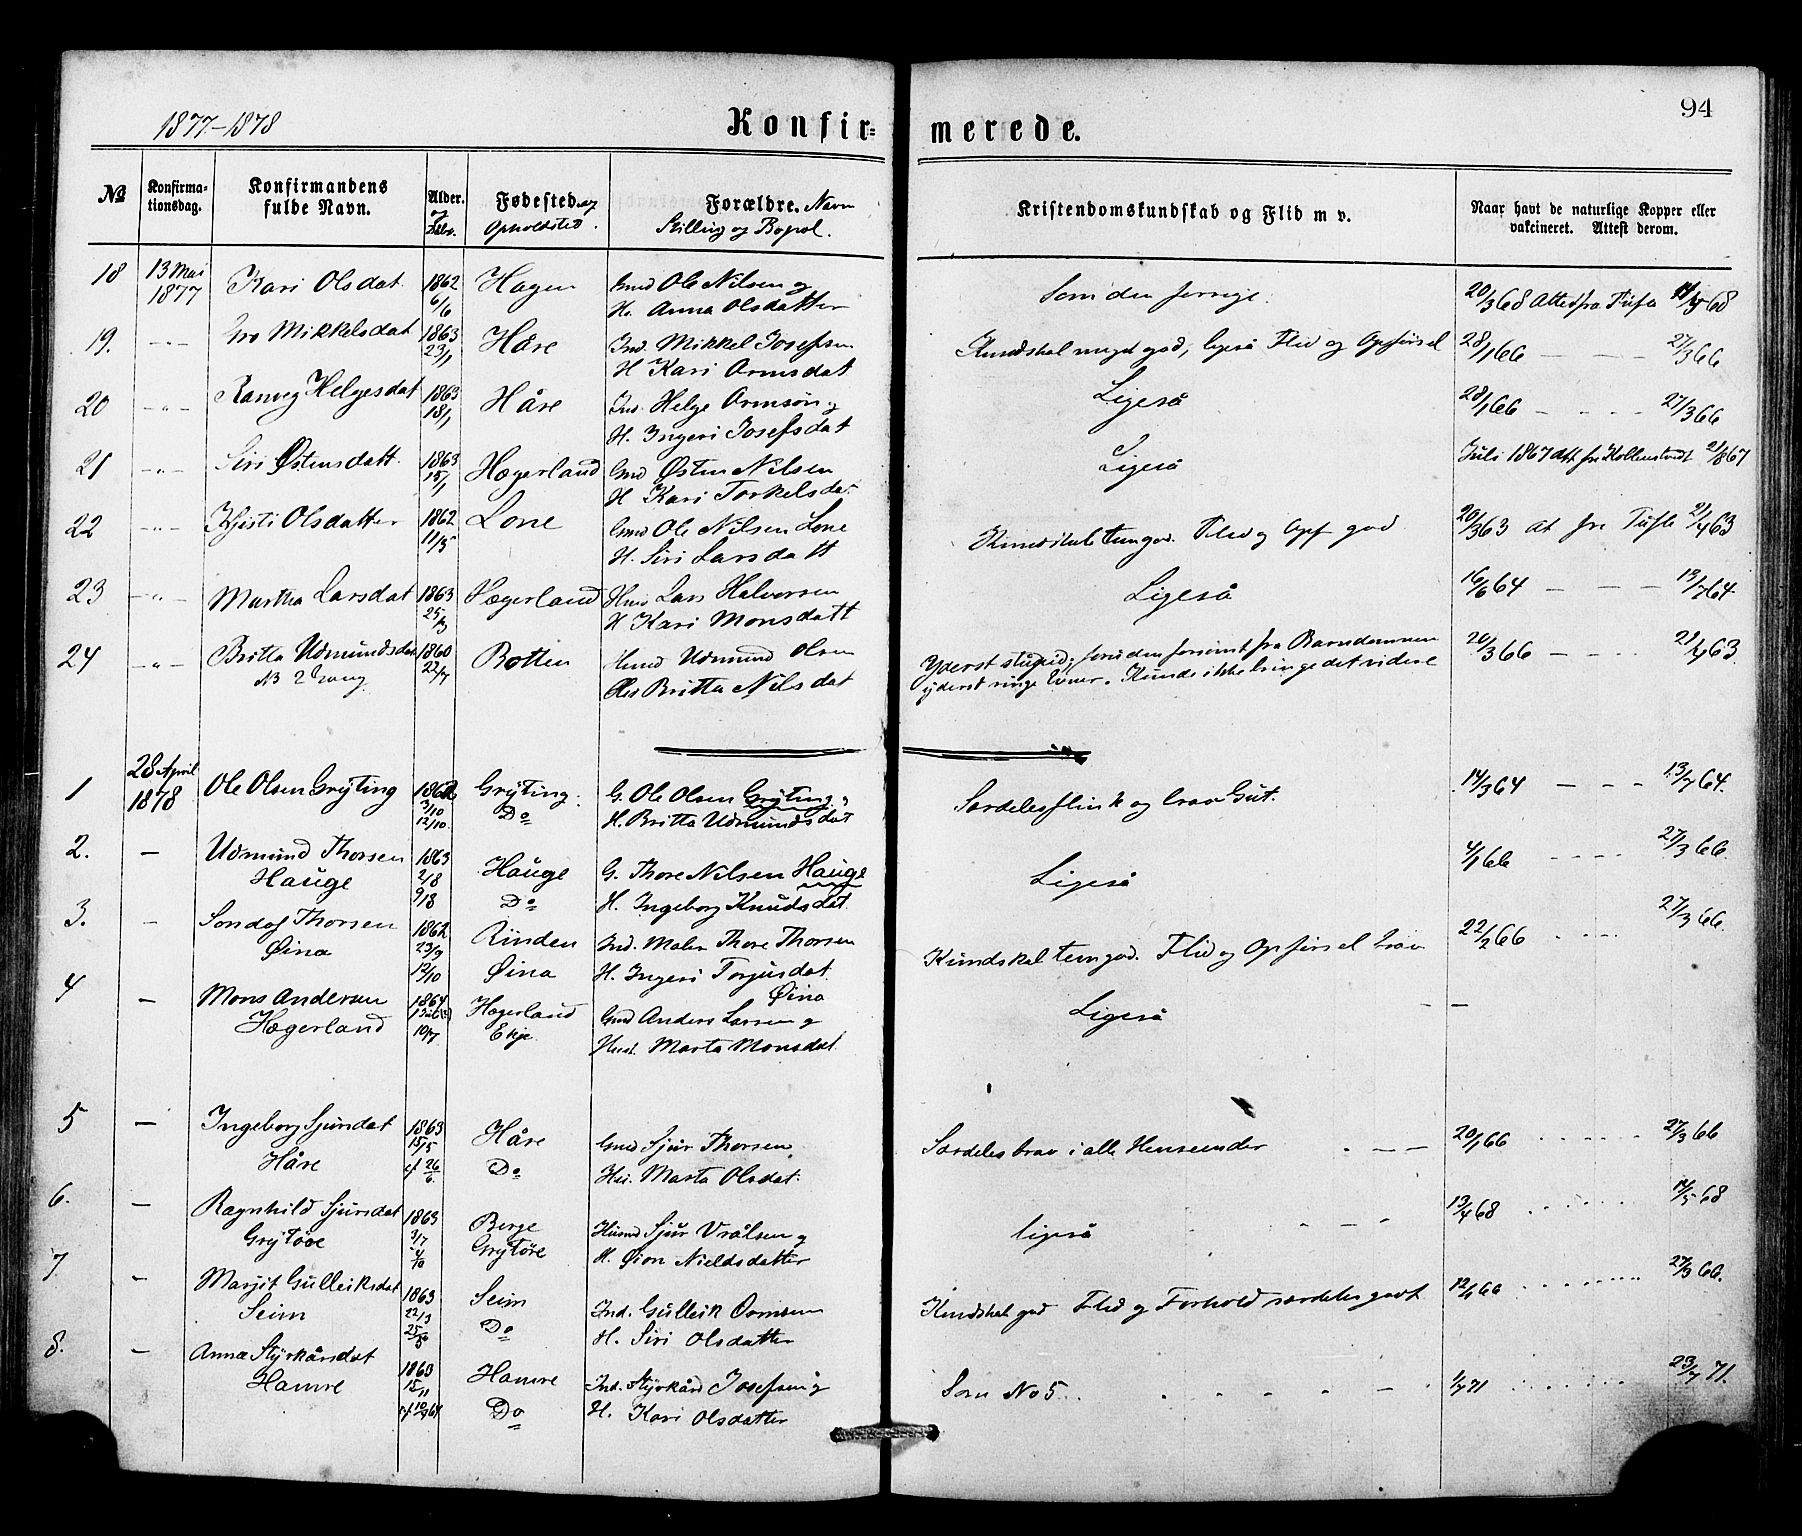 1877-1878 Konfir- merede. 94
№ Konfirma-tionsdag. Konfirmandens fulde Navn. Alder. og Fødested og Opholdsted. Forældre. Navn Stilling og Bopæl. Kristendomskundskab og Flid m v. Naar havt de naturlige Kopper eller vakcineret. Attest derom.
18 13 Mai 1877 Kari Olsdat. 1862 6/6 Hagen Gmd Ole Nilsen og Som den forrige. 20/3 68 Att fra Tufte 68
H. Anna Olsdatter
19. -"- Gro Mikkelsdat 1863 23/1 Hære Ind. Mikkel Josefsen Kundskab meget god, ligeså Flid og Opførsel 28/1 66 - - - 27/3 66
H Kari Ormsdat
20 -"- Ranveg Helgesdat 1863 18/1 Håre Ind. Helge Ormsøn og Ligeså 28/1 66 - - - 27/3 66
H. Ingeri Josefsdat
21 -"- Siri Østensdatt. 1863 15/1 Hægerland Gmd Østen Nilsen Ligeså Juli 1867 att fra 21/8 67
H Kari Torkelsdat
22 -"- Kjersti Olsdatter 1862 11/5 Lone Gmd Ole Nilsen Lone Kundskab temgod. Flid og Opf god 20/3 63 At fra Tufte 21/4 63
H. Siri Larsdatt
23 -"- Martha Larsdat 1863 25/3 Hægerland Hmd Lars Halvorsen Ligeså 16/6 64 - - - 13/7 64
H Kari Monsdatt
24 -"- Britta Udmundsdat 1860 22/7 Botten Hmd Udmund Olsen Yderst stupid, foruden forsømt fra Barndommen 20/3 66 - - - 21/4 63
NB 2 Gang Hus Britta Nilsdat yderst ringe Evner. Kunde ikke bringe det videre
1 28 April 1878 Ole Olsen Gryting 1862 3/10 Gryting. G. Ole Olsen Gryting og Særdeles flink og brav Gut. 14/3 64 - - - 13/7 64.
12/10 Do H. Britta Udmundsdat
2. - Udmund Thorsen 1863 2/8 Hauge G. Thore Nilsen Hauge Ligeså 4/1 66 - - - - 27/3 66
Hauge 9/8 Do H. Ingeborg Knudsdat
3. - Sondof Thorsen 1862 23/9 Rinden Ind. Maler Thore Thorsen Kundskab temgod. Flid og Opførsel brav 22/2 66 - - - 27/3 66.
Øina 12/10 Øina H. Ingeri Torjusdat
Øina
4 - Mons Andersen 1864 Hægerland Gmd Anders Larsen og Ligeså - -
Hægerland 10/7 Ekje Hust. Marta Monsdat
5 - Ingeborg Sjursdat 1863 15/5 Håre Gmd Sjur Thorsen Særdeles brav i alle Henseender - - - 20/1 66 - - - - - 27/3 66
Håre 26/6 Do Hu. Marta Olsdat.
6. - Ragnhild Sjursdat 1863 3/7 Berge Husmd Sjur Vrålsen og ligeså - - - 13/4 68 - - - - - 17/5 68
Grytøre 4/10 Grytøre H. Øion Nieldsdatter
7. - Margit Gulleiksdat 1863 22/3 Seim Ind. Gulleik Ormsen Kundskab god Flid og Forhold særdeles godt 12/1 66 - - - - - 27/3 66.
Seim 25/5 Do H. Siri Olsdatter
8. - Anna Styrkårsdat 1863 15/11 Hamre Ind. Styrkård Josefsen og Som No 5. - - - - - - 1/7 71 - - - - - 23/7 71.
Hamre Do H. Kari Olsdatter